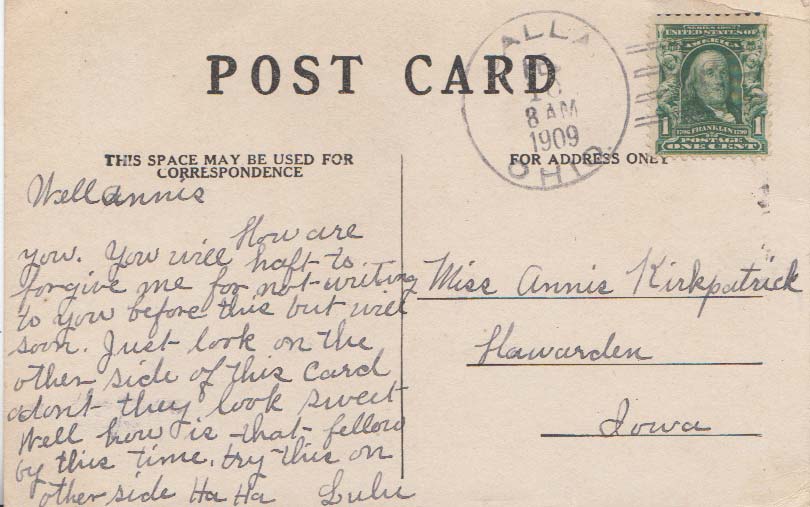 POST CARD
ALLA
8 AM
1909
OHIO.
SERIES 1902
UNITED STATES OF
AMERICA
1 1706 FRANKLIN 1790 1
POSTAGE
ONE CENT
THIS SPACE MAY BE USED FOR
CORRESPONDENCE
FOR ADDRESS ONLY
Well Annis
How are
you. You will haft to
forgive me for not writing
to you before this but will
soon. Just look on the
other side of this card
dont they look sweet
Well how is that fellow
by this time. try this on
other side Ha Ha Lulu
Miss Annis Kirkpatrick
Hawarden
Iowa